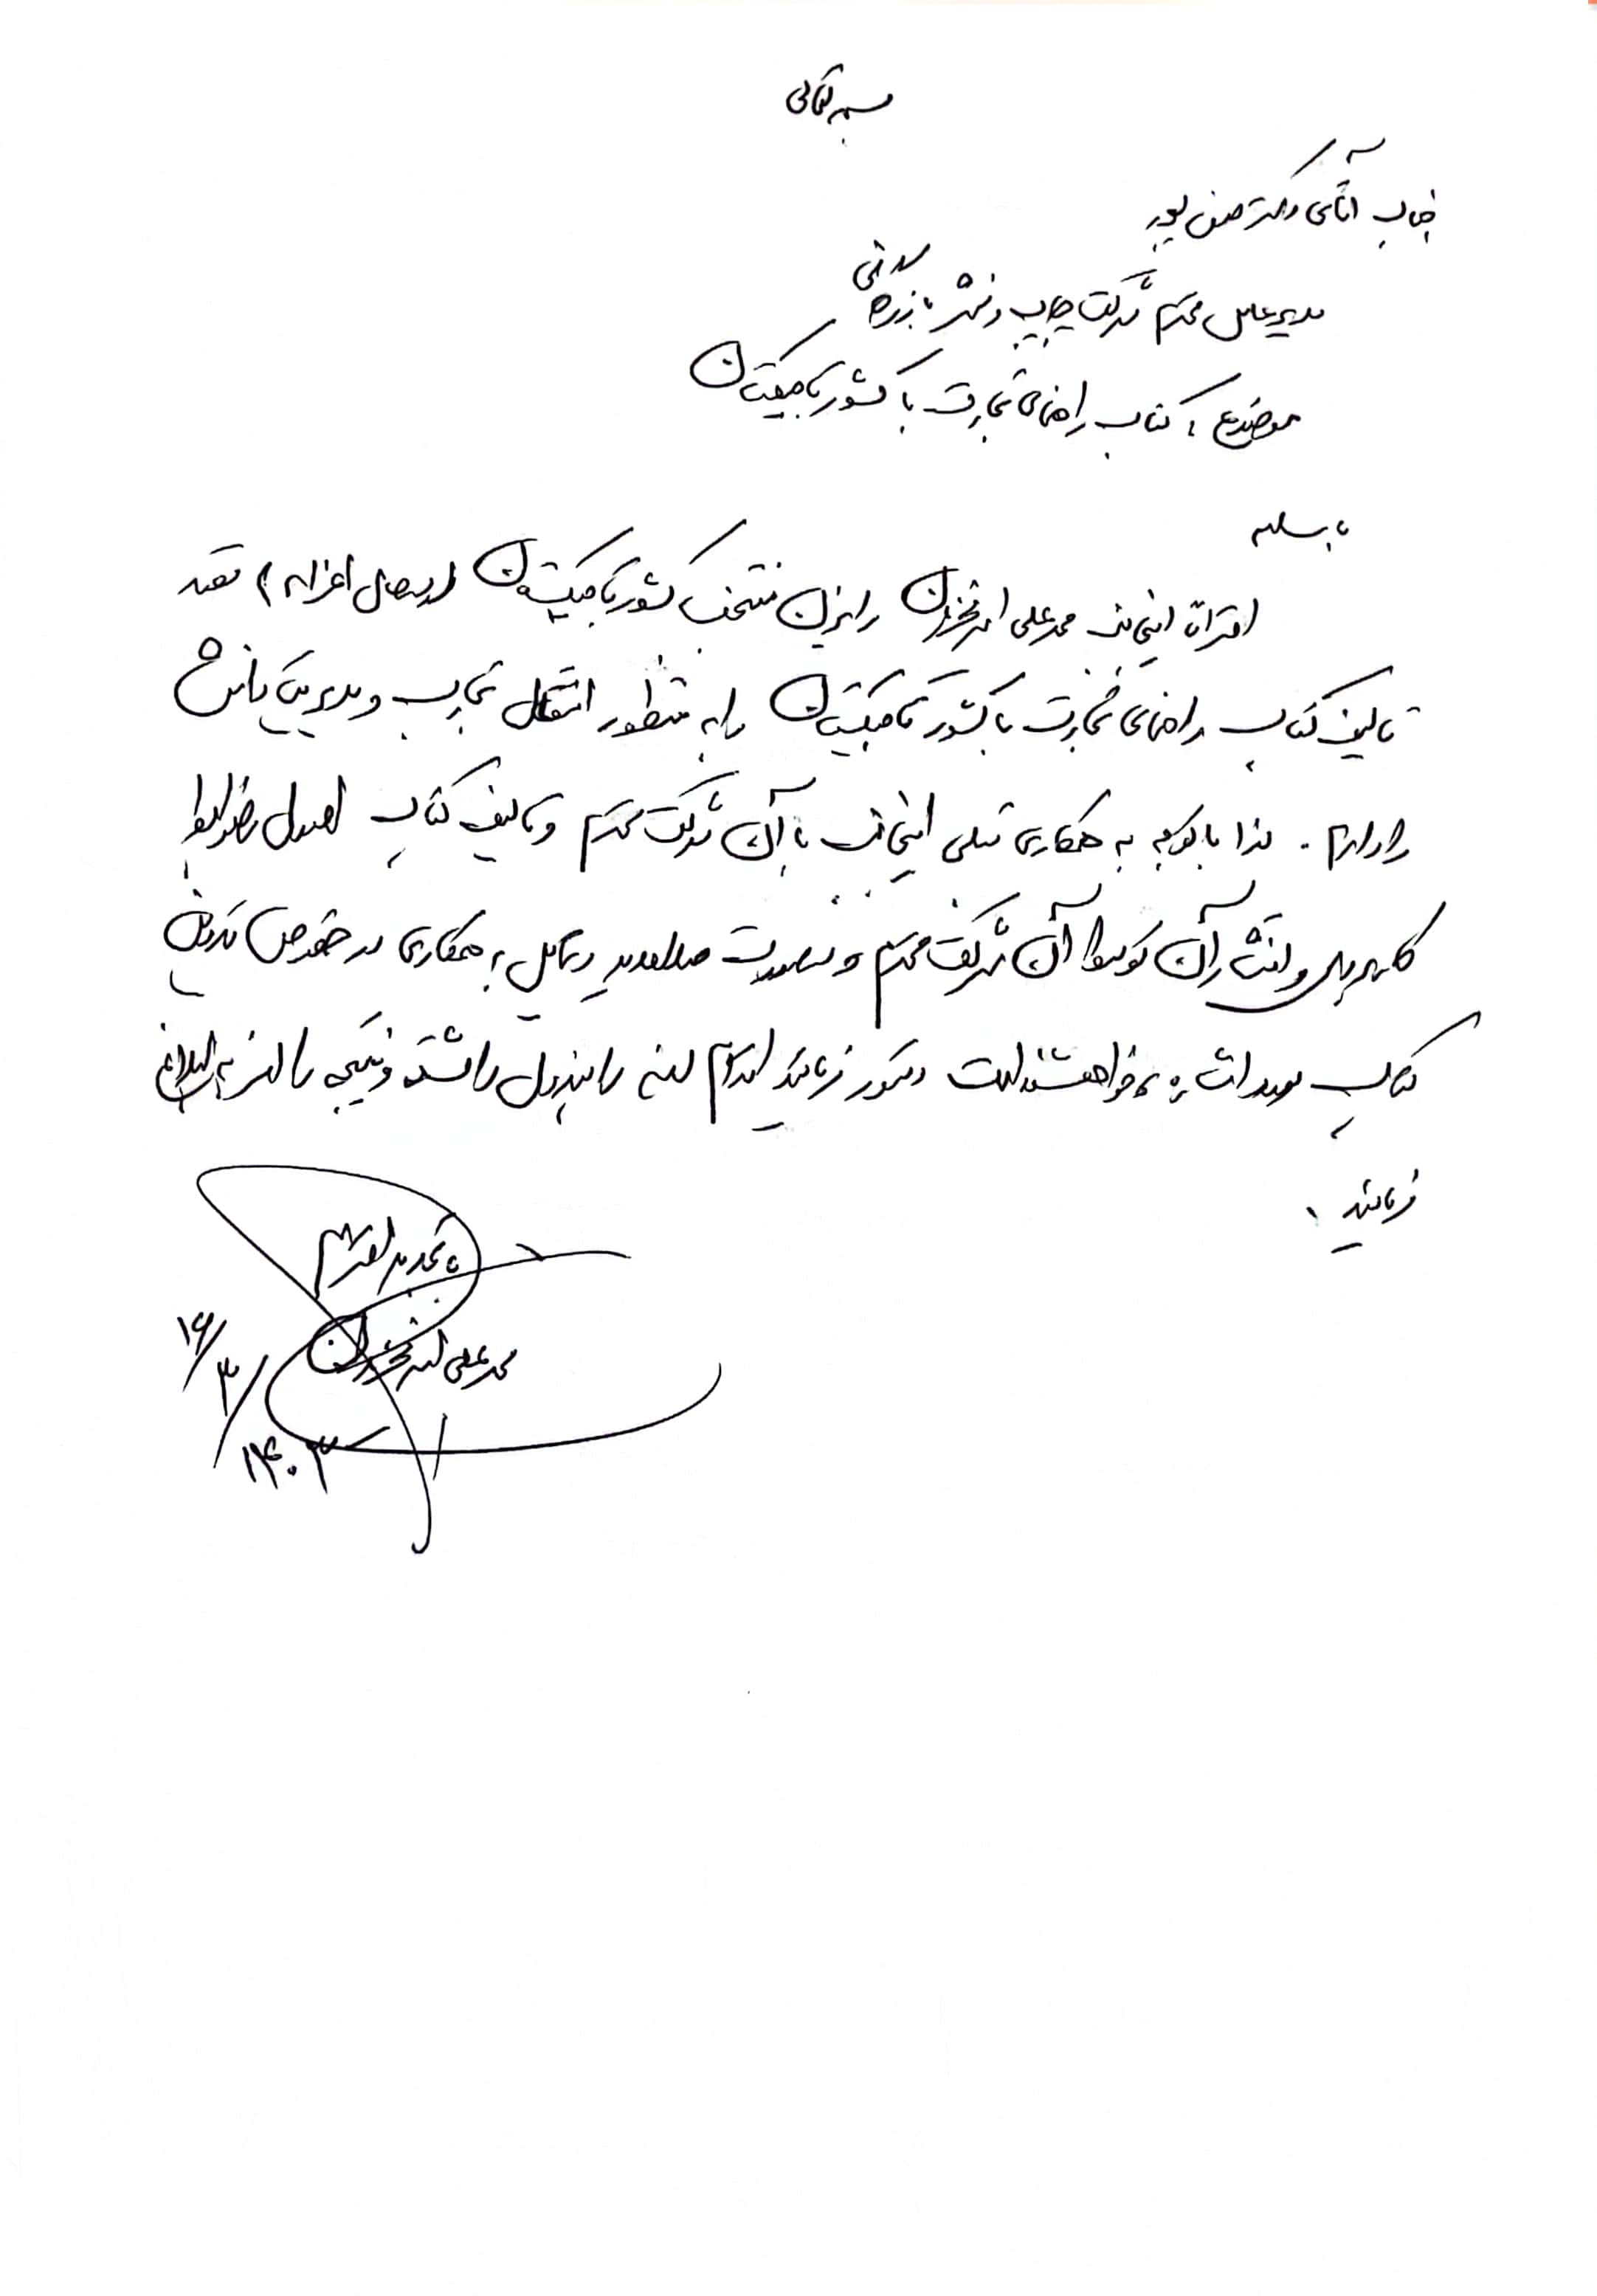 بسمه تعالی
جناب آقای دکتر صفی پور
مدیرعامل محترم شرکت چاپ و نشر بازرگانی
موضوع: کتاب راهنمای تجارت با کشور تاجیکستان
با سلام
احتراماً اینجانب محمدعلی رایزن منتخب کشور تاجیکستان (درحال اعزام) قصد
تالیف کتاب راهنمای تجارت با کشور تاجیکستان را به منظور انتقال تجارب و مدیریت دانش
را دارم. لذا با توجه به همکاری قبلی اینجانب با آن شرکت محترم و تالیف کتاب اصول ضوابط
و انتشار آن توسط آن شرکت محترم و درصورت صلاحدید و تمایل به همکاری در خصوص تدوین
کتاب مورد اشاره خواهشمند است دستور فرمائید اقدام لازم را مبذول داشته و نتیجه را ابلاغ
فرمایند.
با تجدید احترام
محمدعلی
۱۴۰۳/۳/۱۶